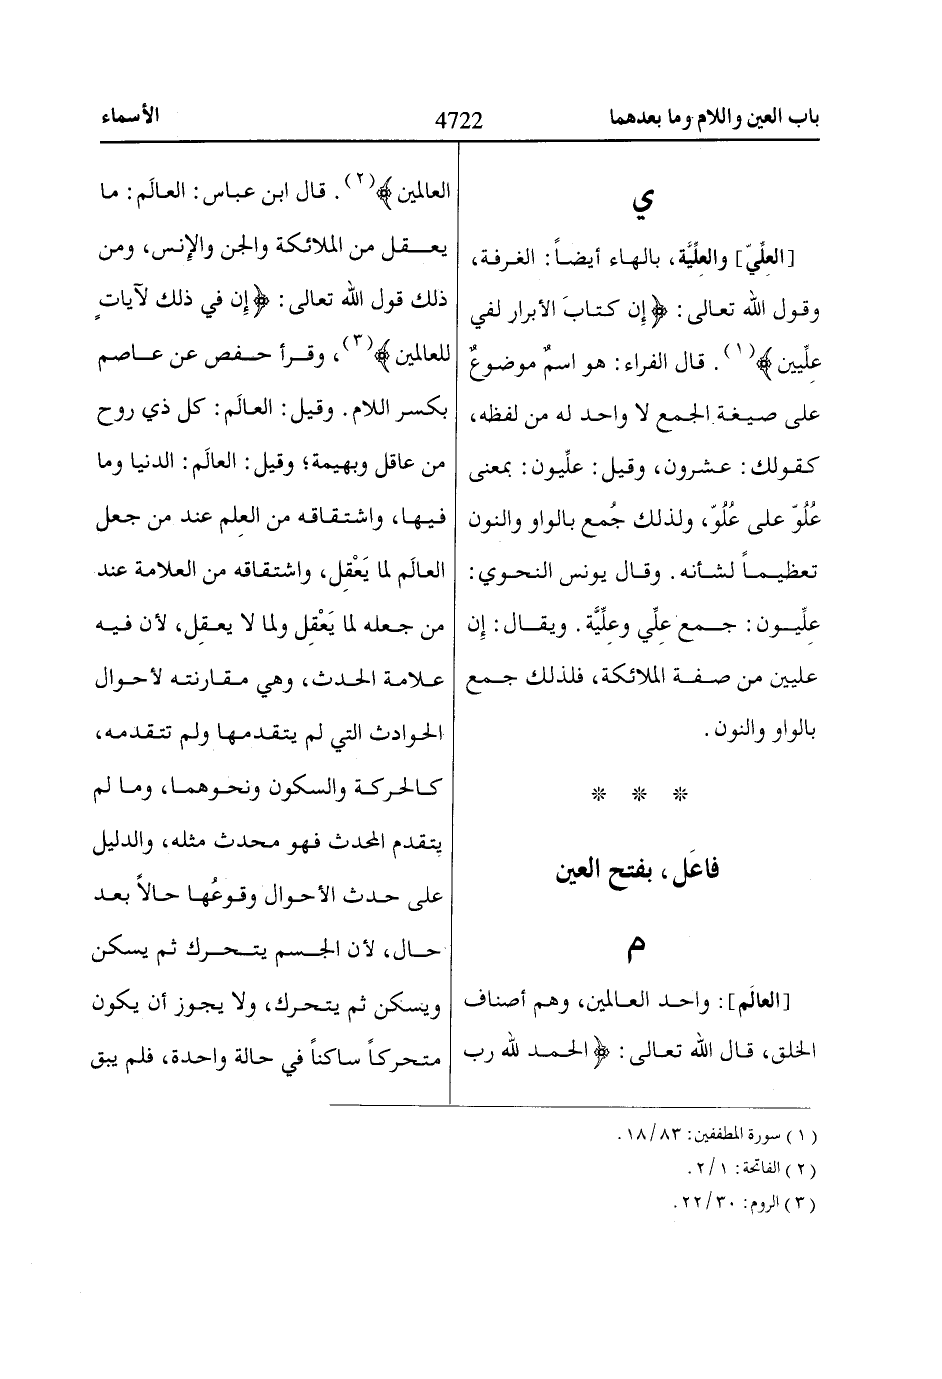 باب العين واللام وما بعدهما
4722
الأسماء
ي
[العلِّيّ] والعلِّيَّة، بالهاء أيضاً: الغرفة،
وقول الله تعالى: ﴿إن كتابَ الأبرار لفي
علِّيين﴾(١). قال الفراء: هو اسمٌ موضوعٌ
على صيغة الجمع لا واحد له من لفظه،
كقولك: عشرون، وقيل: علِّيون: بمعنى
عُلُوّ على عُلُوّ، ولذلك جُمع بالواو والنون
تعظيماً لشأنه. وقال يونس النحوي:
علِّيون: جمع علِّي وعلِّيَّة. ويقال: إن
عليين من صفة الملائكة، فلذلك جمع
بالواو والنون.
❊ ❊ ❊
فاعَل، بفتح العين
م
[العالَم]: واحد العالمين، وهم أصناف
الخلق، قال الله تعالى: ﴿الحمد لله رب
العالمين﴾(٢). قال ابن عباس: العالَم: ما
يعقل من الملائكة والجن والإنس، ومن
ذلك قول الله تعالى: ﴿إن في ذلك لآياتٍ
للعالمين﴾(٣)، وقرأ حفص عن عاصم
بكسر اللام. وقيل: العالَم: كل ذي روح
من عاقل وبهيمة؛ وقيل: العالَم: الدنيا وما
فيها، واشتقاقه من العلِم عند من جعل
العالَم لما يَعْقِل، واشتقاقه من العلامة عند
من جعله لما يَعْقِل ولما لا يعقِل، لأن فيه
علامة الحدث، وهي مقارنته لأحوال
الحوادث التي لم يتقدمها ولم تتقدمه،
كالحركة والسكون ونحوهما، وما لم
يتقدم المحدث فهو محدث مثله، والدليل
على حدث الأحوال وقوعُها حالاً بعد
حال، لأن الجسم يتحرك ثم يسكن
ويسكن ثم يتحرك، ولا يجوز أن يكون
متحركاً ساكناً في حالة واحدة، فلم يبق
(١) سورة المطففين: ١٨/٨٣.
(٢) الفاتحة: ٢/١.
(٣) الروم: ٢٢/٣٠.